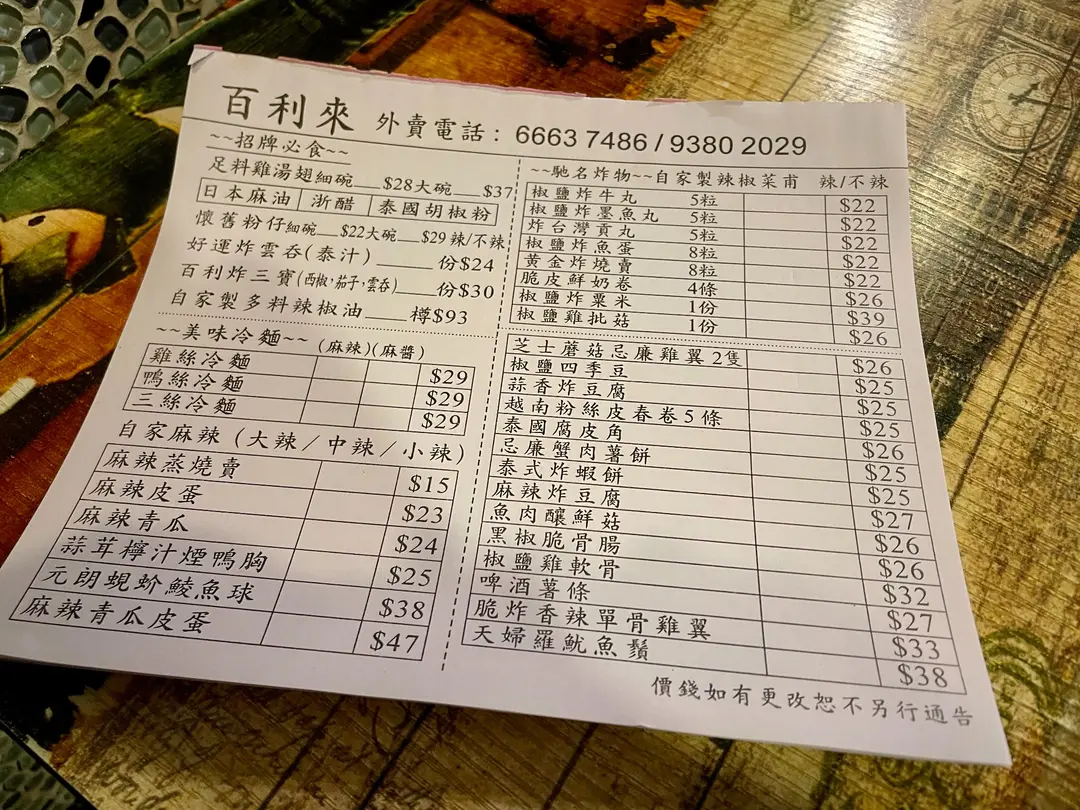 百利來 外賣電話：6663 7486 / 9380 2029
~~招牌必食~~
足料雞湯翅細碗___$28大碗___$37
日本麻油 浙醋 泰國胡椒粉
懷舊粉仔細碗___$22大碗___$29 辣/不辣
好運炸雲吞(泰汁)______份$24
百利炸三寶(西椒,茄子,雲吞)___份$30
自家製多料辣椒油____樽$93
~~美味冷麵~~ (麻辣)(麻醬)
雞絲冷麵 $29
鴨絲冷麵 $29
三絲冷麵 $29
自家麻辣（大辣/中辣/小辣）
麻辣蒸燒賣 $15
麻辣皮蛋 $23
麻辣青瓜 $24
蒜茸檸汁煙鴨胸 $25
元朗蜆蚧鯪魚球 $38
麻辣青瓜皮蛋 $47
~~馳名炸物~~自家製辣椒菜甫 辣/不辣
椒鹽炸牛丸 5粒 $22
椒鹽炸墨魚丸 5粒 $22
炸台灣貢丸 5粒 $22
椒鹽炸魚蛋 8粒 $22
黃金炸燒賣 8粒 $22
脆皮鮮奶卷 4條 $26
椒鹽炸粟米 1份 $39
椒鹽雞批菇 1份 $26
芝士蘑菇忌廉雞翼2隻 $26
椒鹽四季豆 $25
蒜香炸豆腐 $25
越南粉絲皮春卷5條 $25
泰國腐皮角 $26
忌廉蟹肉薯餅 $25
泰式炸蝦餅 $25
麻辣炸豆腐 $27
魚肉釀鮮菇 $26
黑椒脆骨腸 $26
椒鹽雞軟骨 $32
啤酒薯條 $27
脆炸香辣單骨雞翼 $33
天婦羅魷魚鬚 $38
價錢如有更改恕不另行通告